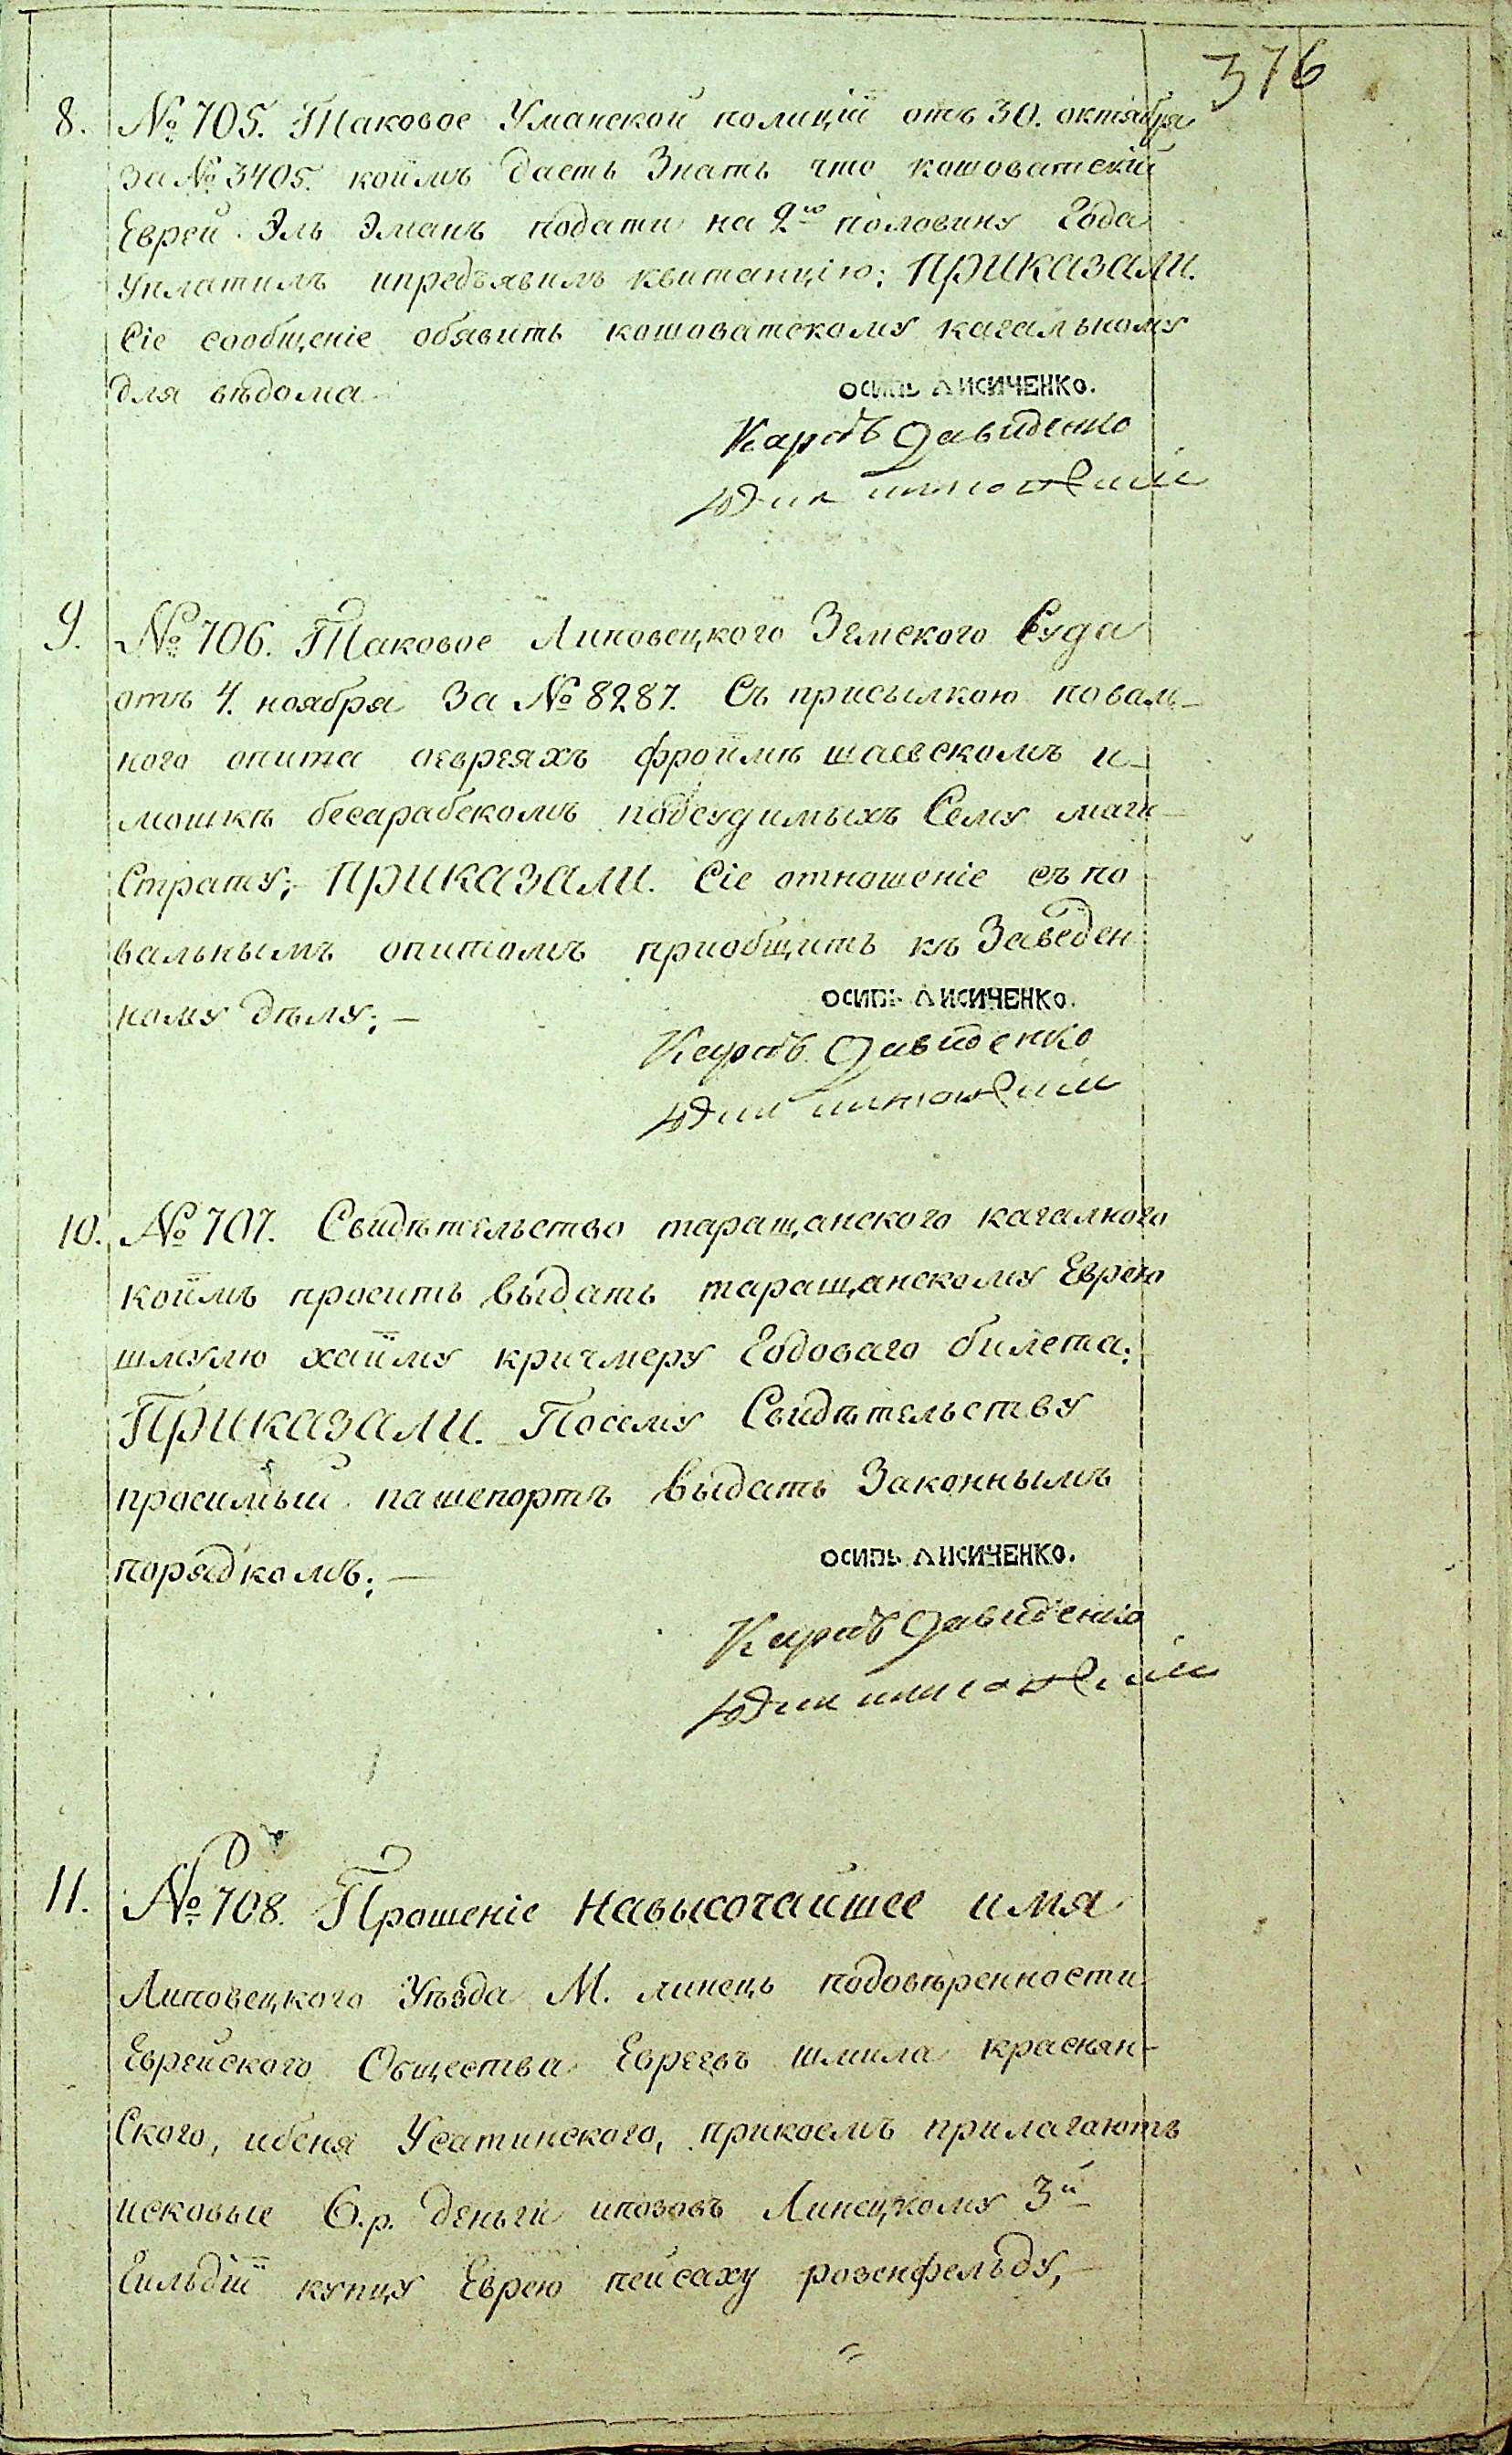 376
8. № 705. Таковое Уманской полиціи отъ 30. октября
За № 3405. коимъ даетъ Знать что кошоватскій
Еврей Эль Эманъ подати на 2ю половину Года
Уплатилъ ипредъявилъ квитанцію; ПРИКАЗАЛИ.
Сіе сообщеніе обявить кошоватскому кагальному
для вѣдома
ОСИПЪ ЛИСИЧЕНКО.
Карпъ Давиденко
9. № 706. Таковое Липовецкого Земского Суда
отъ 4. ноября За № 8287. Съ присылкою поваль-
ного опита оевреяхъ фроимѣ шаевскомъ и-
мошкѣ бесарабскомъ подсудимыхъ Сему маги-
Страту; ПРИКАЗАЛИ. Сіе отношеніе съ по
вальнымъ опитомъ приобщить къ Заведен
ному дѣлу; —
ОСИПЪ ЛИСИЧЕНКО.
Карпъ Давиденко
10. № 707. Свидѣтельство таращанского кагалного
коимъ проситъ выдать таращанскому Еврею
шмулю хаиму кричмеру Годоваго билета;
ПРИКАЗАЛИ. Посему Свидѣтельству
просимый пашепортъ выдать Законнымъ
порядкомъ; —
ОСИПЪ ЛИСИЧЕНКО.
Карпъ Давиденко
11. № 708. Прошеніе Навысочайшее имя
Липовецкого Уѣзда М. линецъ подовѣренности
Еврейского Общества Евреевъ шмила краснян-
Ского, ибеня Усатинского, прикоемъ прилагаютъ
исковые 6.р. деньги ипозовъ Линецкому 3й
Гильдіи купцу Еврею пейсаху розенфельду, —